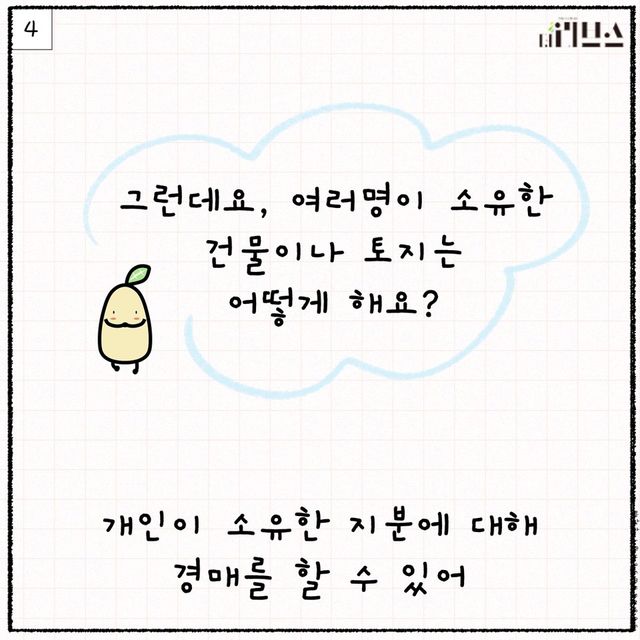 4
그런데요, 여러명이 소유한
건물이나 토지는
어떻게 해요?
개인이 소유한 지분에 대해
경매를 할 수 있어